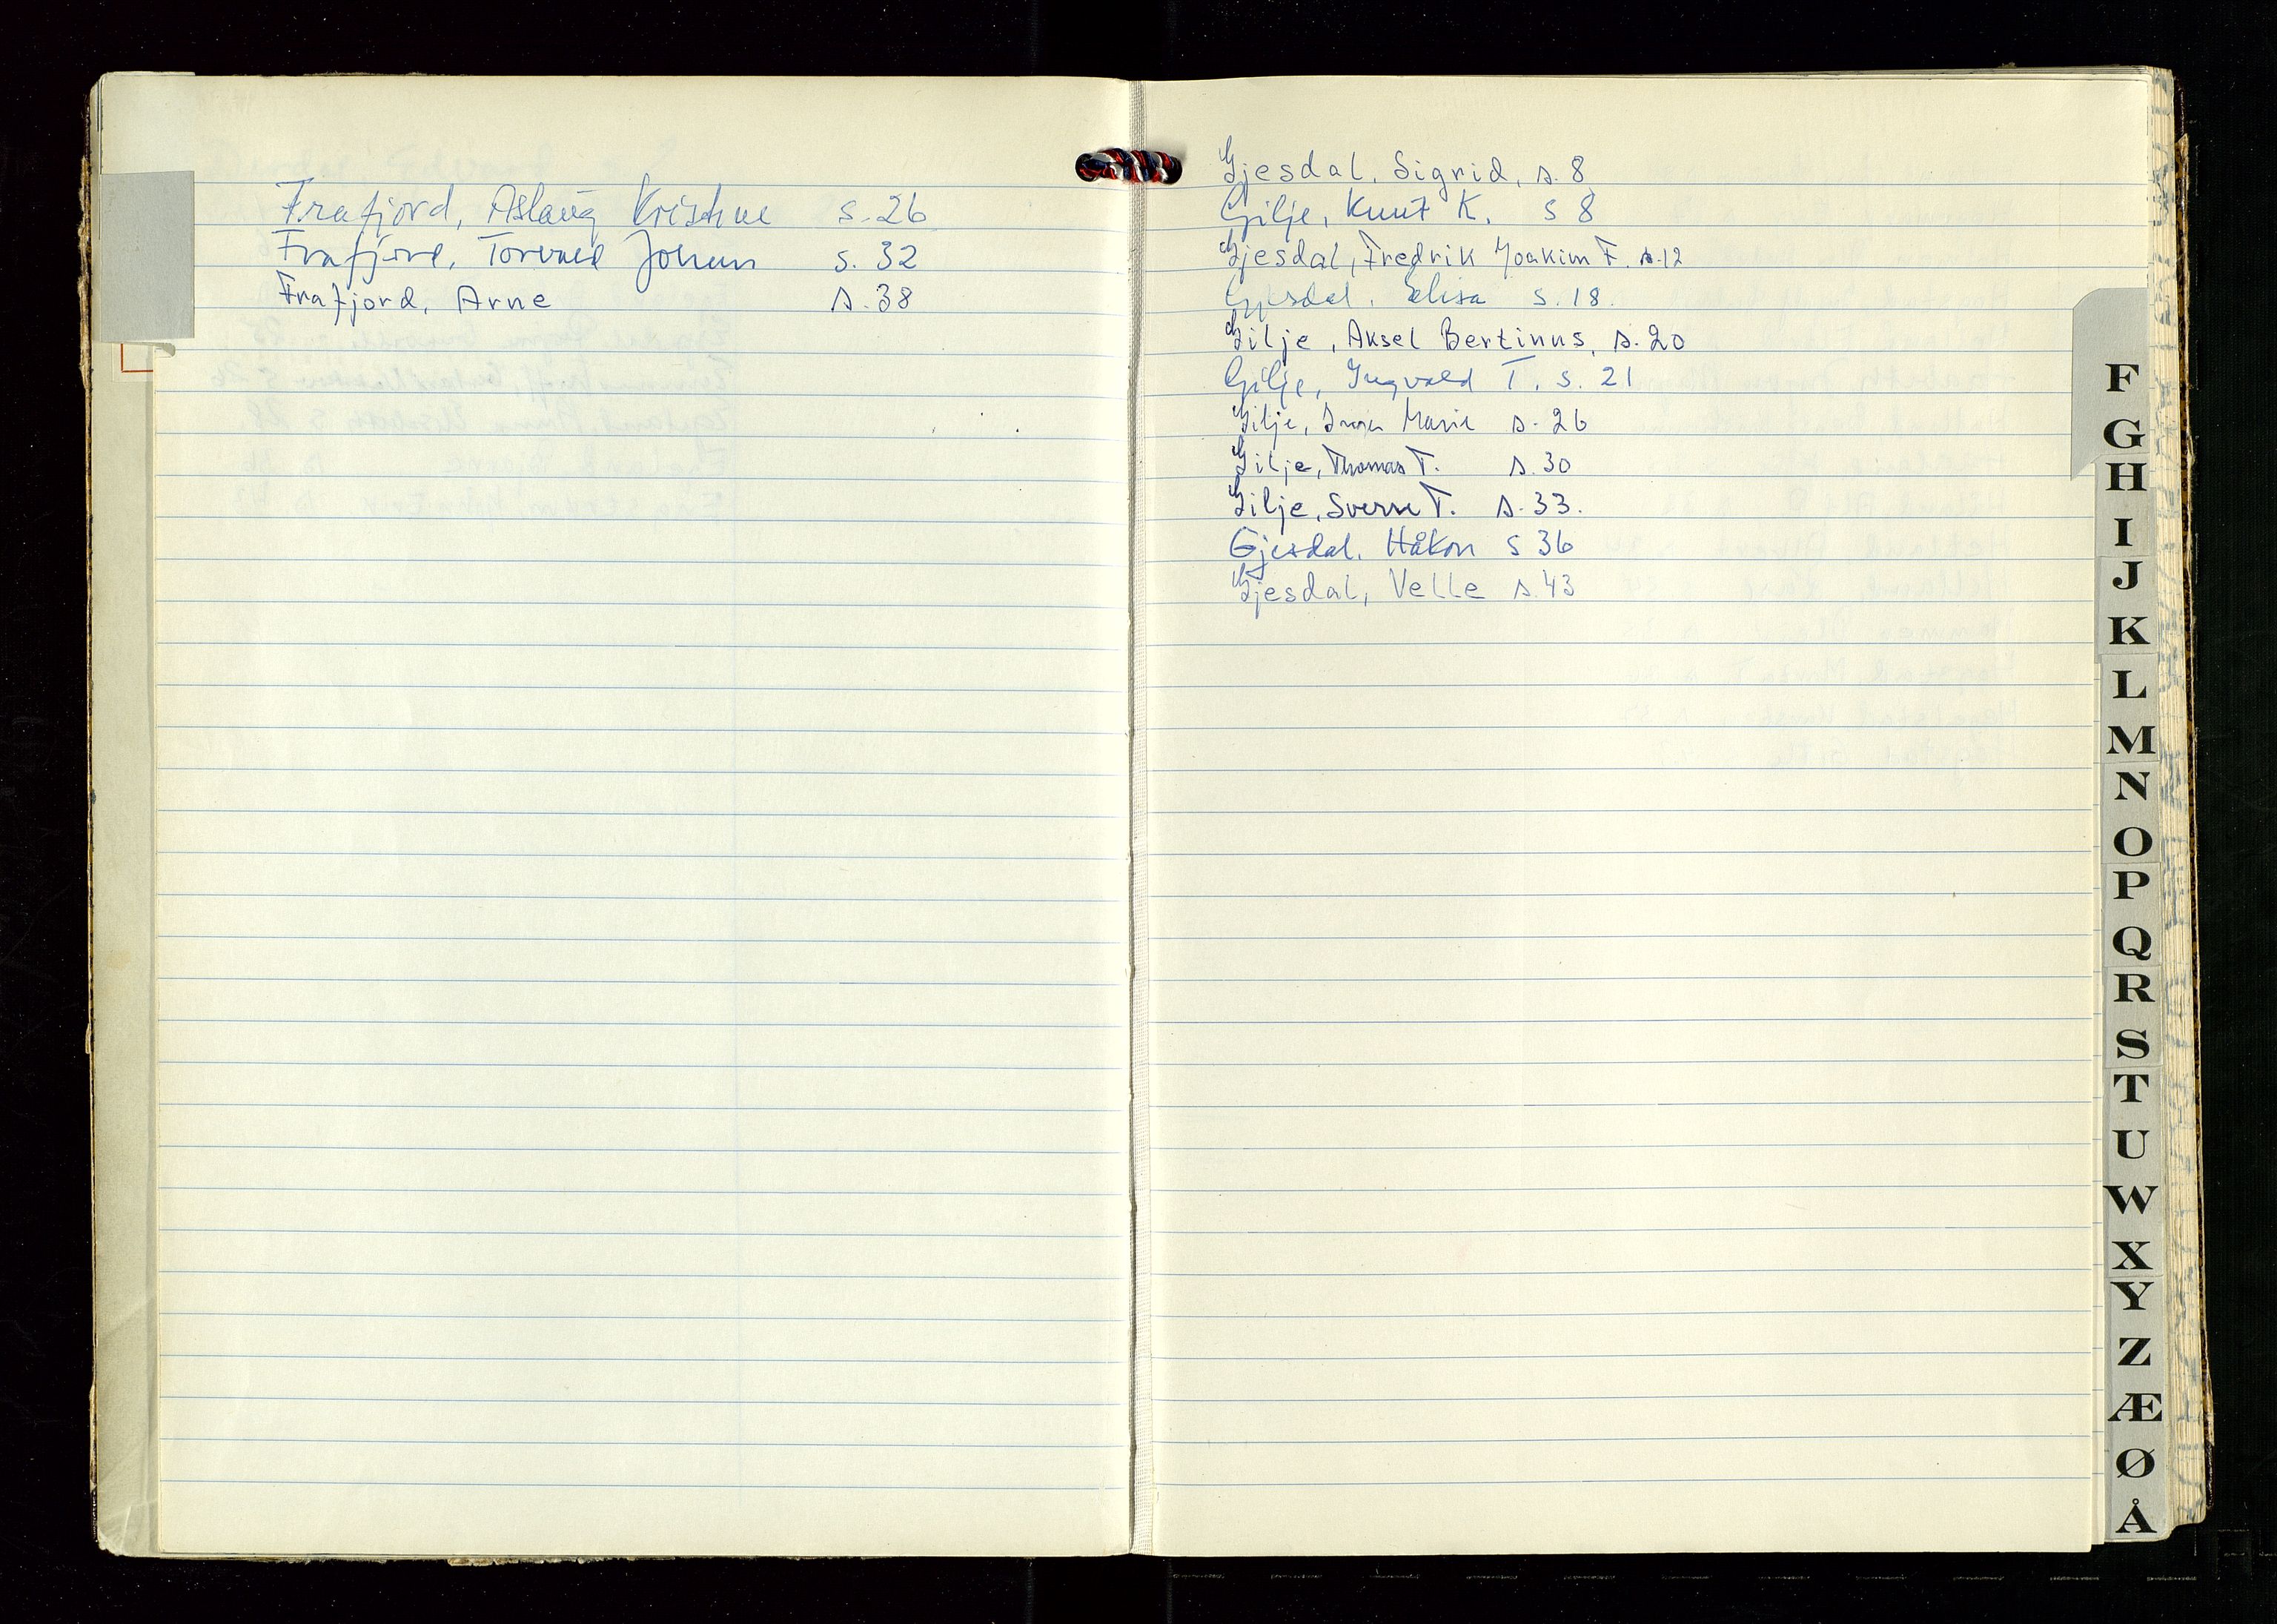 Frafjord, Aslaug Kristine s. 26
Frafjord, Torvald Johan s. 32
Frafjord, Arne s. 38
Gjesdal, Sigrid, s. 8
Gilje, Knut K. s 8
Gjesdal, Fredrik Joakim F. s. 12
Gjesdal, Elisa s. 18.
Gilje, Aksel Bertinus, s. 20
Gilje, Ingvald T. s. 21
Gilje, Marie s. 26
Gilje, Thomas T. s. 30
Gilje, Sverre T. s. 33.
Gjesdal, Håkon s 36
Gjesdal, Velle s. 43
F
G
H
I
J
K
L
M
N
O
P
Q
R
S
T
U
W
X
Y
Z
Æ
Ø
Å